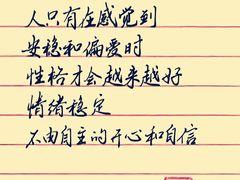 人只有在感觉到
安稳和偏爱时
性格才会越来越好
情绪稳定
不由自主的开心和自信